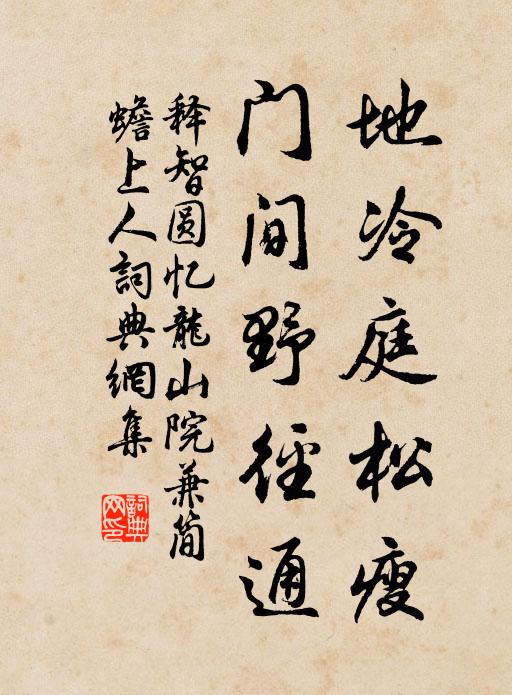 地冷庭松瘦
门间野径通
释智圆忆龍山院兼简
蟾上人詞典網集
詞典網印